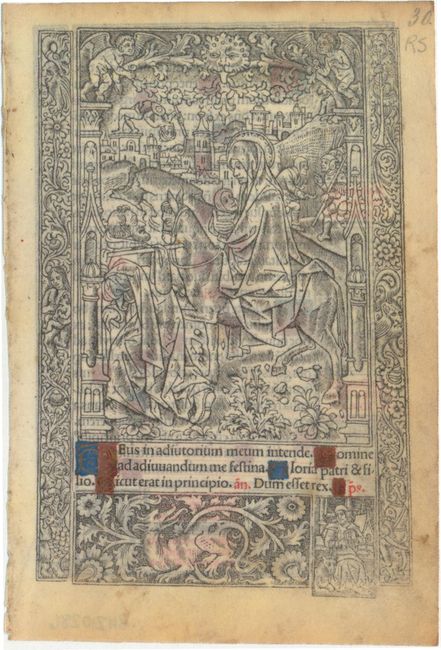 30
RS
DEus in adiutorium meum intende. Domine
ad adiuvandum me festina. Gloria patri & fi-
lio. Sicut erat in principio. añ. Dum esset rex. ps.